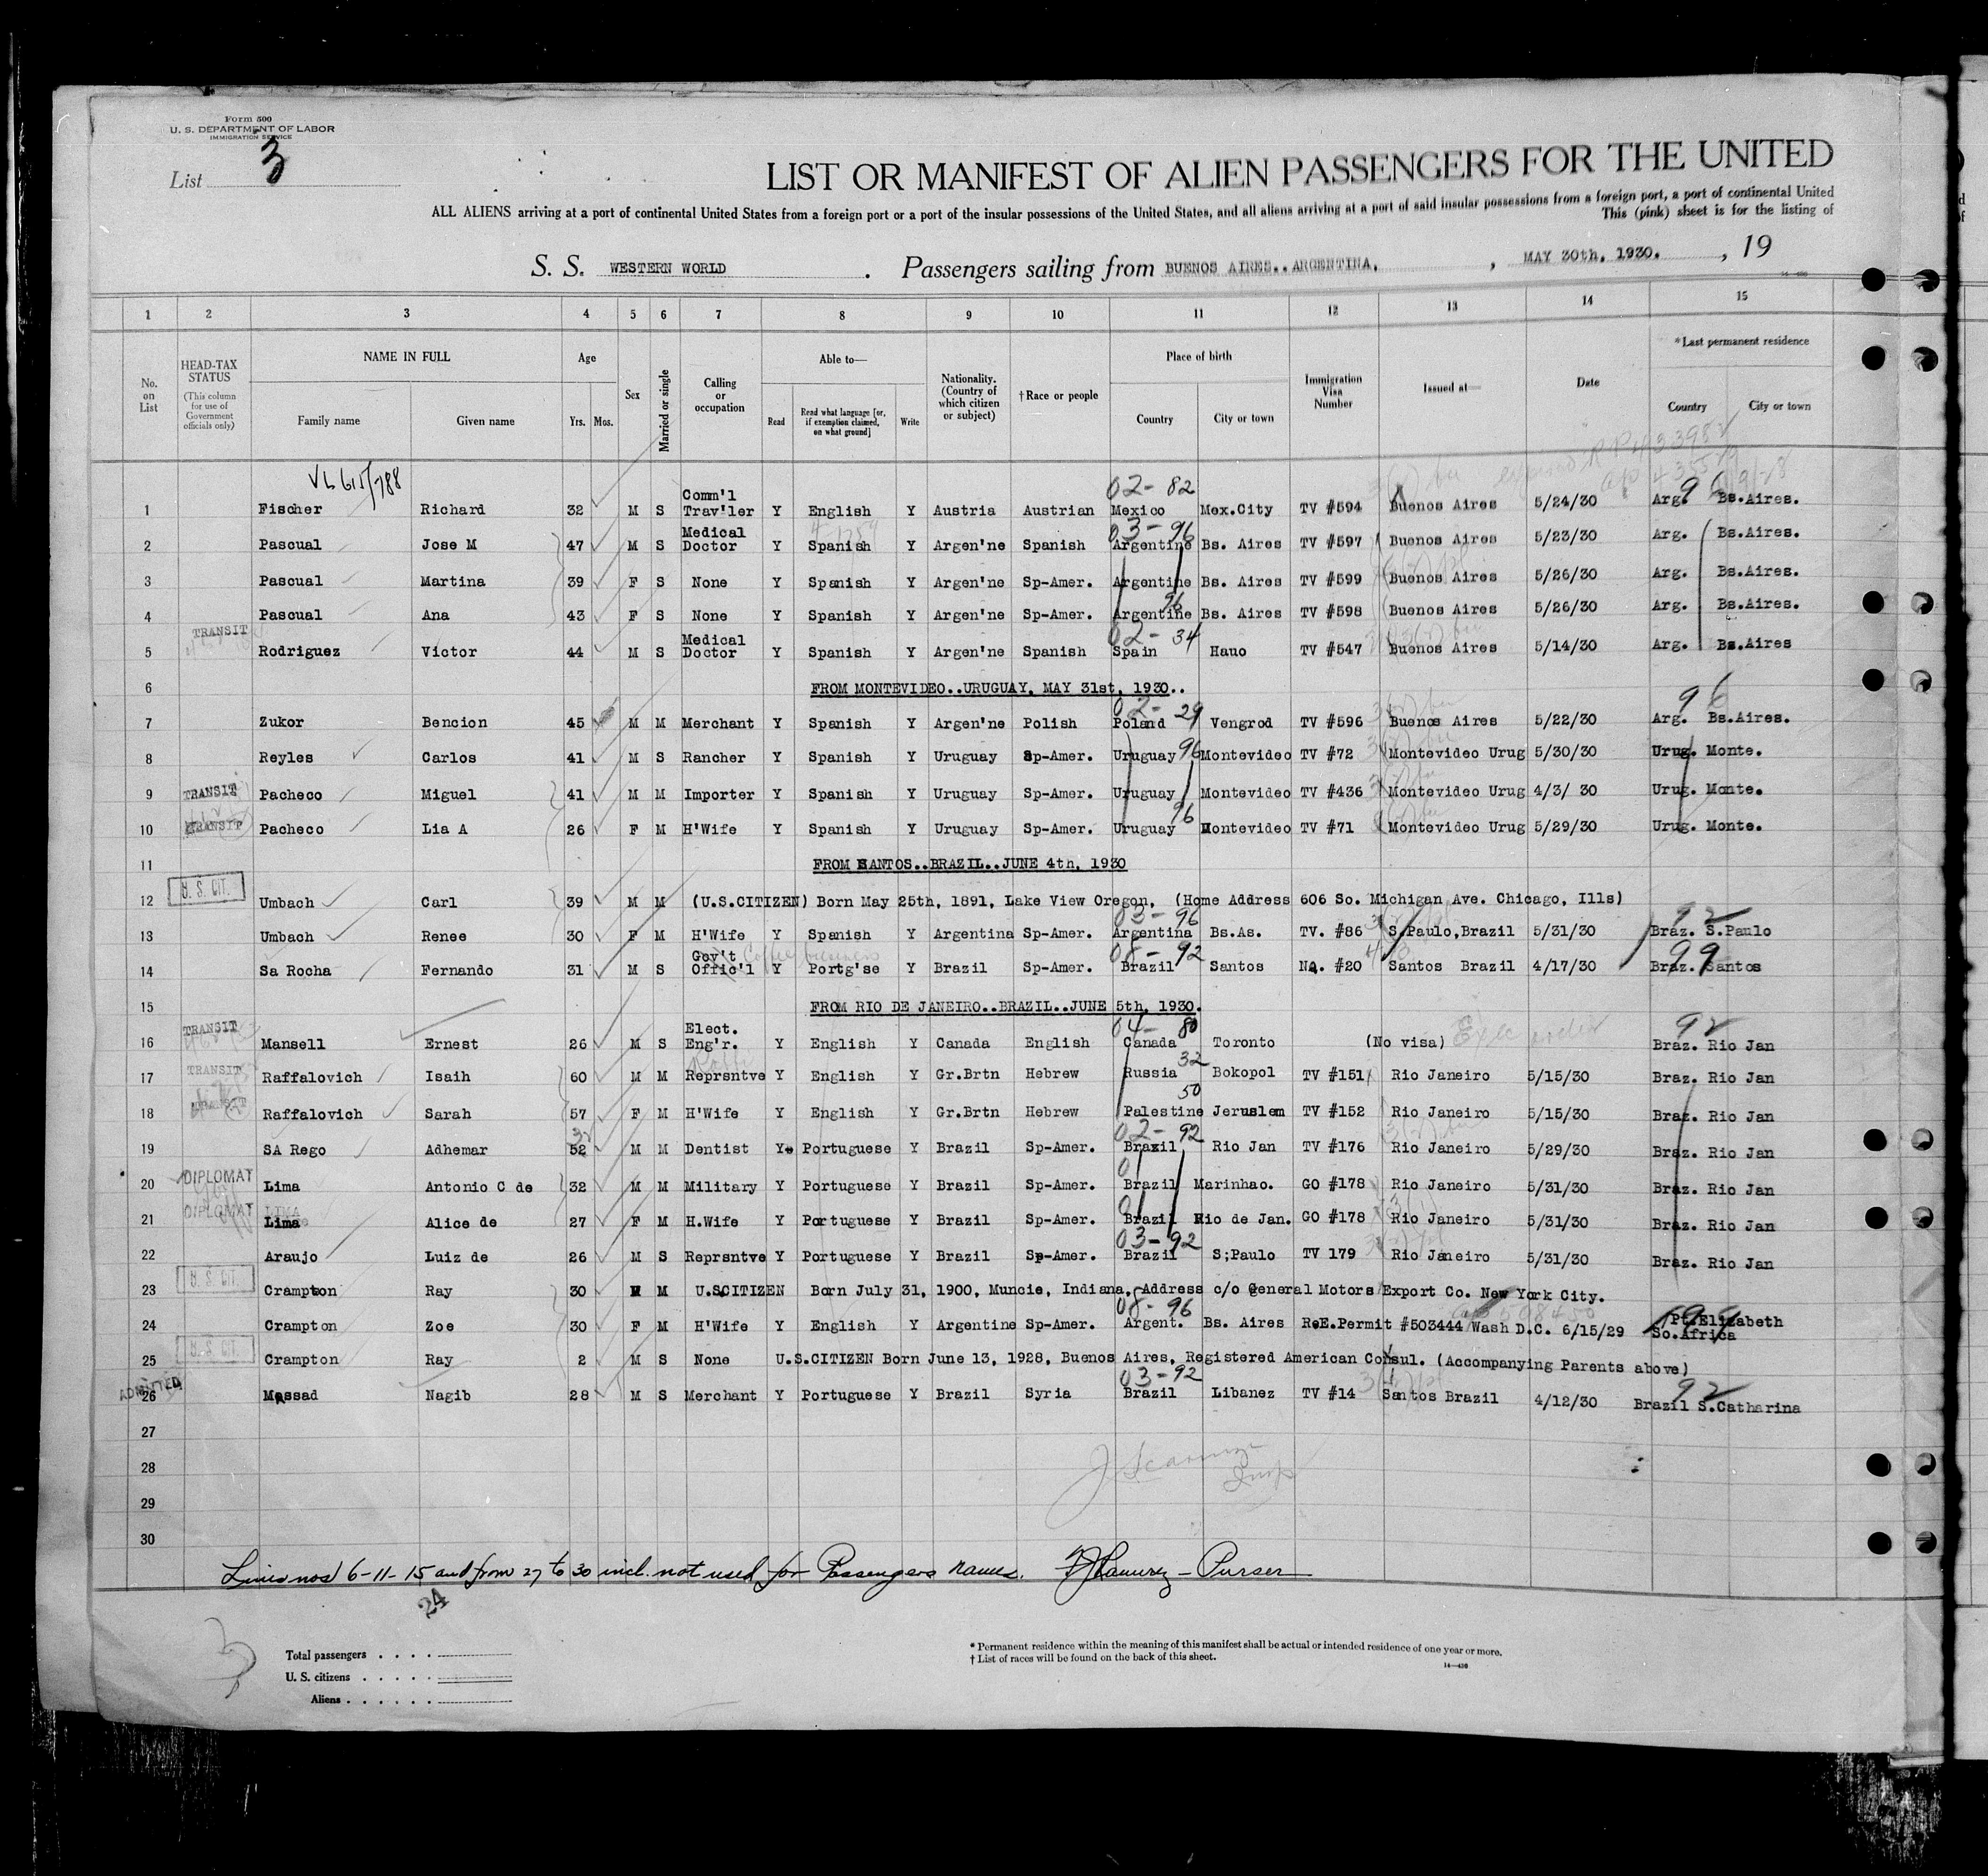 Form 500
U. S. DEPARTMENT OF LABOR
IMMIGRATION SERVICE
List 3
LIST OR MANIFEST OF ALIEN PASSENGERS FOR THE UNITED
ALL ALIENS arriving at a port of continental United States from a foreign port or a port of the insular possessions of the United States, and all aliens arriving at a port of said insular possessions from a foreign port, a port of continental United
This (pink) sheet is for the listing of
S. S. WESTERN WORLD . Passengers sailing from BUENOS AIRES..ARGENTINA, , MAY 30th, 1930. , 19
1 2 3 4 5 6 7 8 9 10 11 12 13 14 15
No. on List
HEAD-TAX STATUS (This column for use of Government officials only)
NAME IN FULL Family name Given name
Age Yrs. Mos.
Sex
Married or single
Calling or occupation
Able to— Read Read what language [or, if exemption claimed, on what ground] Write
Nationality. (Country of which citizen or subject)
†Race or people
Place of birth Country City or town
Immigration Visa Number
Issued at—
Date
*Last permanent residence Country City or town
VL 615/788 02- 82
1 Fischer Richard 32 M S Comm'l Trav'ler Y English Y Austria Austrian Mexico Mex.City TV #594 Buenos Aires 5/24/30 Arg. Bs.Aires.
03- 96
2 Pascual Jose M 47 M S Medical Doctor Y Spanish Y Argen'ne Spanish Argentine Bs. Aires TV #597 Buenos Aires 5/23/30 Arg. Bs.Aires.
3 Pascual Martina 39 F S None Y Spanish Y Argen'ne Sp-Amer. Argentine Bs. Aires TV #599 Buenos Aires 5/26/30 Arg. Bs.Aires.
96
4 Pascual Ana 43 F S None Y Spanish Y Argen'ne Sp-Amer. Argentine Bs. Aires TV #598 Buenos Aires 5/26/30 Arg. Bs.Aires.
TRANSIT 02- 34
5 Rodriguez Victor 44 M S Medical Doctor Y Spanish Y Argen'ne Spanish Spain Hauo TV #547 Buenos Aires 5/14/30 Arg. Bs.Aires
6 FROM MONTEVIDEO..URUGUAY, MAY 31st, 1930..
02- 29 96
7 Zukor Bencion 45 M M Merchant Y Spanish Y Argen'ne Polish Poland Vengrod TV #596 Buenos Aires 5/22/30 Arg. Bs.Aires.
8 Reyles Carlos 41 M S Rancher Y Spanish Y Uruguay Sp-Amer. Uruguay 96 Montevideo TV #72 Montevideo Urug 5/30/30 Urug. Monte.
9 TRANSIT Pacheco Miguel 41 M M Importer Y Spanish Y Uruguay Sp-Amer. Uruguay Montevideo TV #436 Montevideo Urug 4/3/ 30 Urug. Monte.
96
10 TRANSIT Pacheco Lia A 26 F M H'Wife Y Spanish Y Uruguay Sp-Amer. Uruguay Montevideo TV #71 Montevideo Urug 5/29/30 Urug. Monte.
11 FROM SANTOS..BRAZIL..JUNE 4th, 1930
U. S. CIT.
12 Umbach Carl 39 M M (U.S.CITIZEN) Born May 25th, 1891, Lake View Oregon, (Home Address 606 So. Michigan Ave. Chicago, Ills)
03- 96 92
13 Umbach Renee 30 F M H'Wife Y Spanish Y Argentina Sp-Amer. Argentina Bs.As. TV. #86 S.Paulo,Brazil 5/31/30 Braz. S.Paulo
Coffee business 92 99
14 Sa Rocha Fernando 31 M S Gov't Offic'l Y Portg'se Y Brazil Sp-Amer. Brazil Santos No. #20 Santos Brazil 4/17/30 Braz. Santos
15 FROM RIO DE JANEIRO..BRAZIL..JUNE 5th, 1930.
TRANSIT 04- 80 92
16 Mansell Ernest 26 M S Elect. Eng'r. Y English Y Canada English Canada Toronto (No visa) Braz. Rio Jan
TRANSIT 32
17 Raffalovich Isaih 60 M M Reprsntve Y English Y Gr.Brtn Hebrew Russia Bokopol TV #151 Rio Janeiro 5/15/30 Braz. Rio Jan
TRANSIT 50
18 Raffalovich Sarah 57 F M H'Wife Y English Y Gr.Brtn Hebrew Palestine Jeruslem TV #152 Rio Janeiro 5/15/30 Braz. Rio Jan
32 02- 92
19 SA Rego Adhemar 52 M M Dentist Y Portuguese Y Brazil Sp-Amer. Brazil Rio Jan TV #176 Rio Janeiro 5/29/30 Braz. Rio Jan
DIPLOMAT 01
20 Lima Antonio C de 32 M M Military Y Portuguese Y Brazil Sp-Amer. Brazil Marinhao. GO #178 Rio Janeiro 5/31/30 Braz. Rio Jan
DIPLOMAT LIMA 01
21 Lima Alice de 27 F M H.Wife Y Portuguese Y Brazil Sp-Amer. Brazil Rio de Jan. GO #178 Rio Janeiro 5/31/30 Braz. Rio Jan
03-92
22 Araujo Luiz de 26 M S Reprsntve Y Portuguese Y Brazil Sp-Amer. Brazil S;Paulo TV 179 Rio Janeiro 5/31/30 Braz. Rio Jan
U. S. CIT.
23 Crampton Ray 30 M M U.SCITIZEN Born July 31, 1900, Muncie, Indiana, Address c/o General Motors Export Co. New York City.
96 99
24 Crampton Zoe 30 F M H'Wife Y English Y Argentine Sp-Amer. Argent. Bs. Aires Re.E.Permit #503444 Wash D.C. 6/15/29 Pt.Elizabeth So.Africa
U. S. CIT.
25 Crampton Ray 2 M S None U.S.CITIZEN Born June 13, 1928, Buenos Aires, Registered American Consul. (Accompanying Parents above)
ADMITTED 03-92 92
26 Massad Nagib 28 M S Merchant Y Portuguese Y Brazil Syria Brazil Libanez TV #14 Santos Brazil 4/12/30 Brazil S.Catharina
27
28
29
30
Lines nos 6-11-15 and from 27 to 30 incl. not used for Passengers names. Purser
24
Total passengers
U. S. citizens
Aliens
* Permanent residence within the meaning of this manifest shall be actual or intended residence of one year or more.
† List of races will be found on the back of this sheet.
14—430